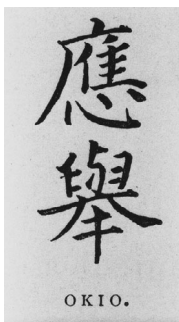 應
舉
OKIO.